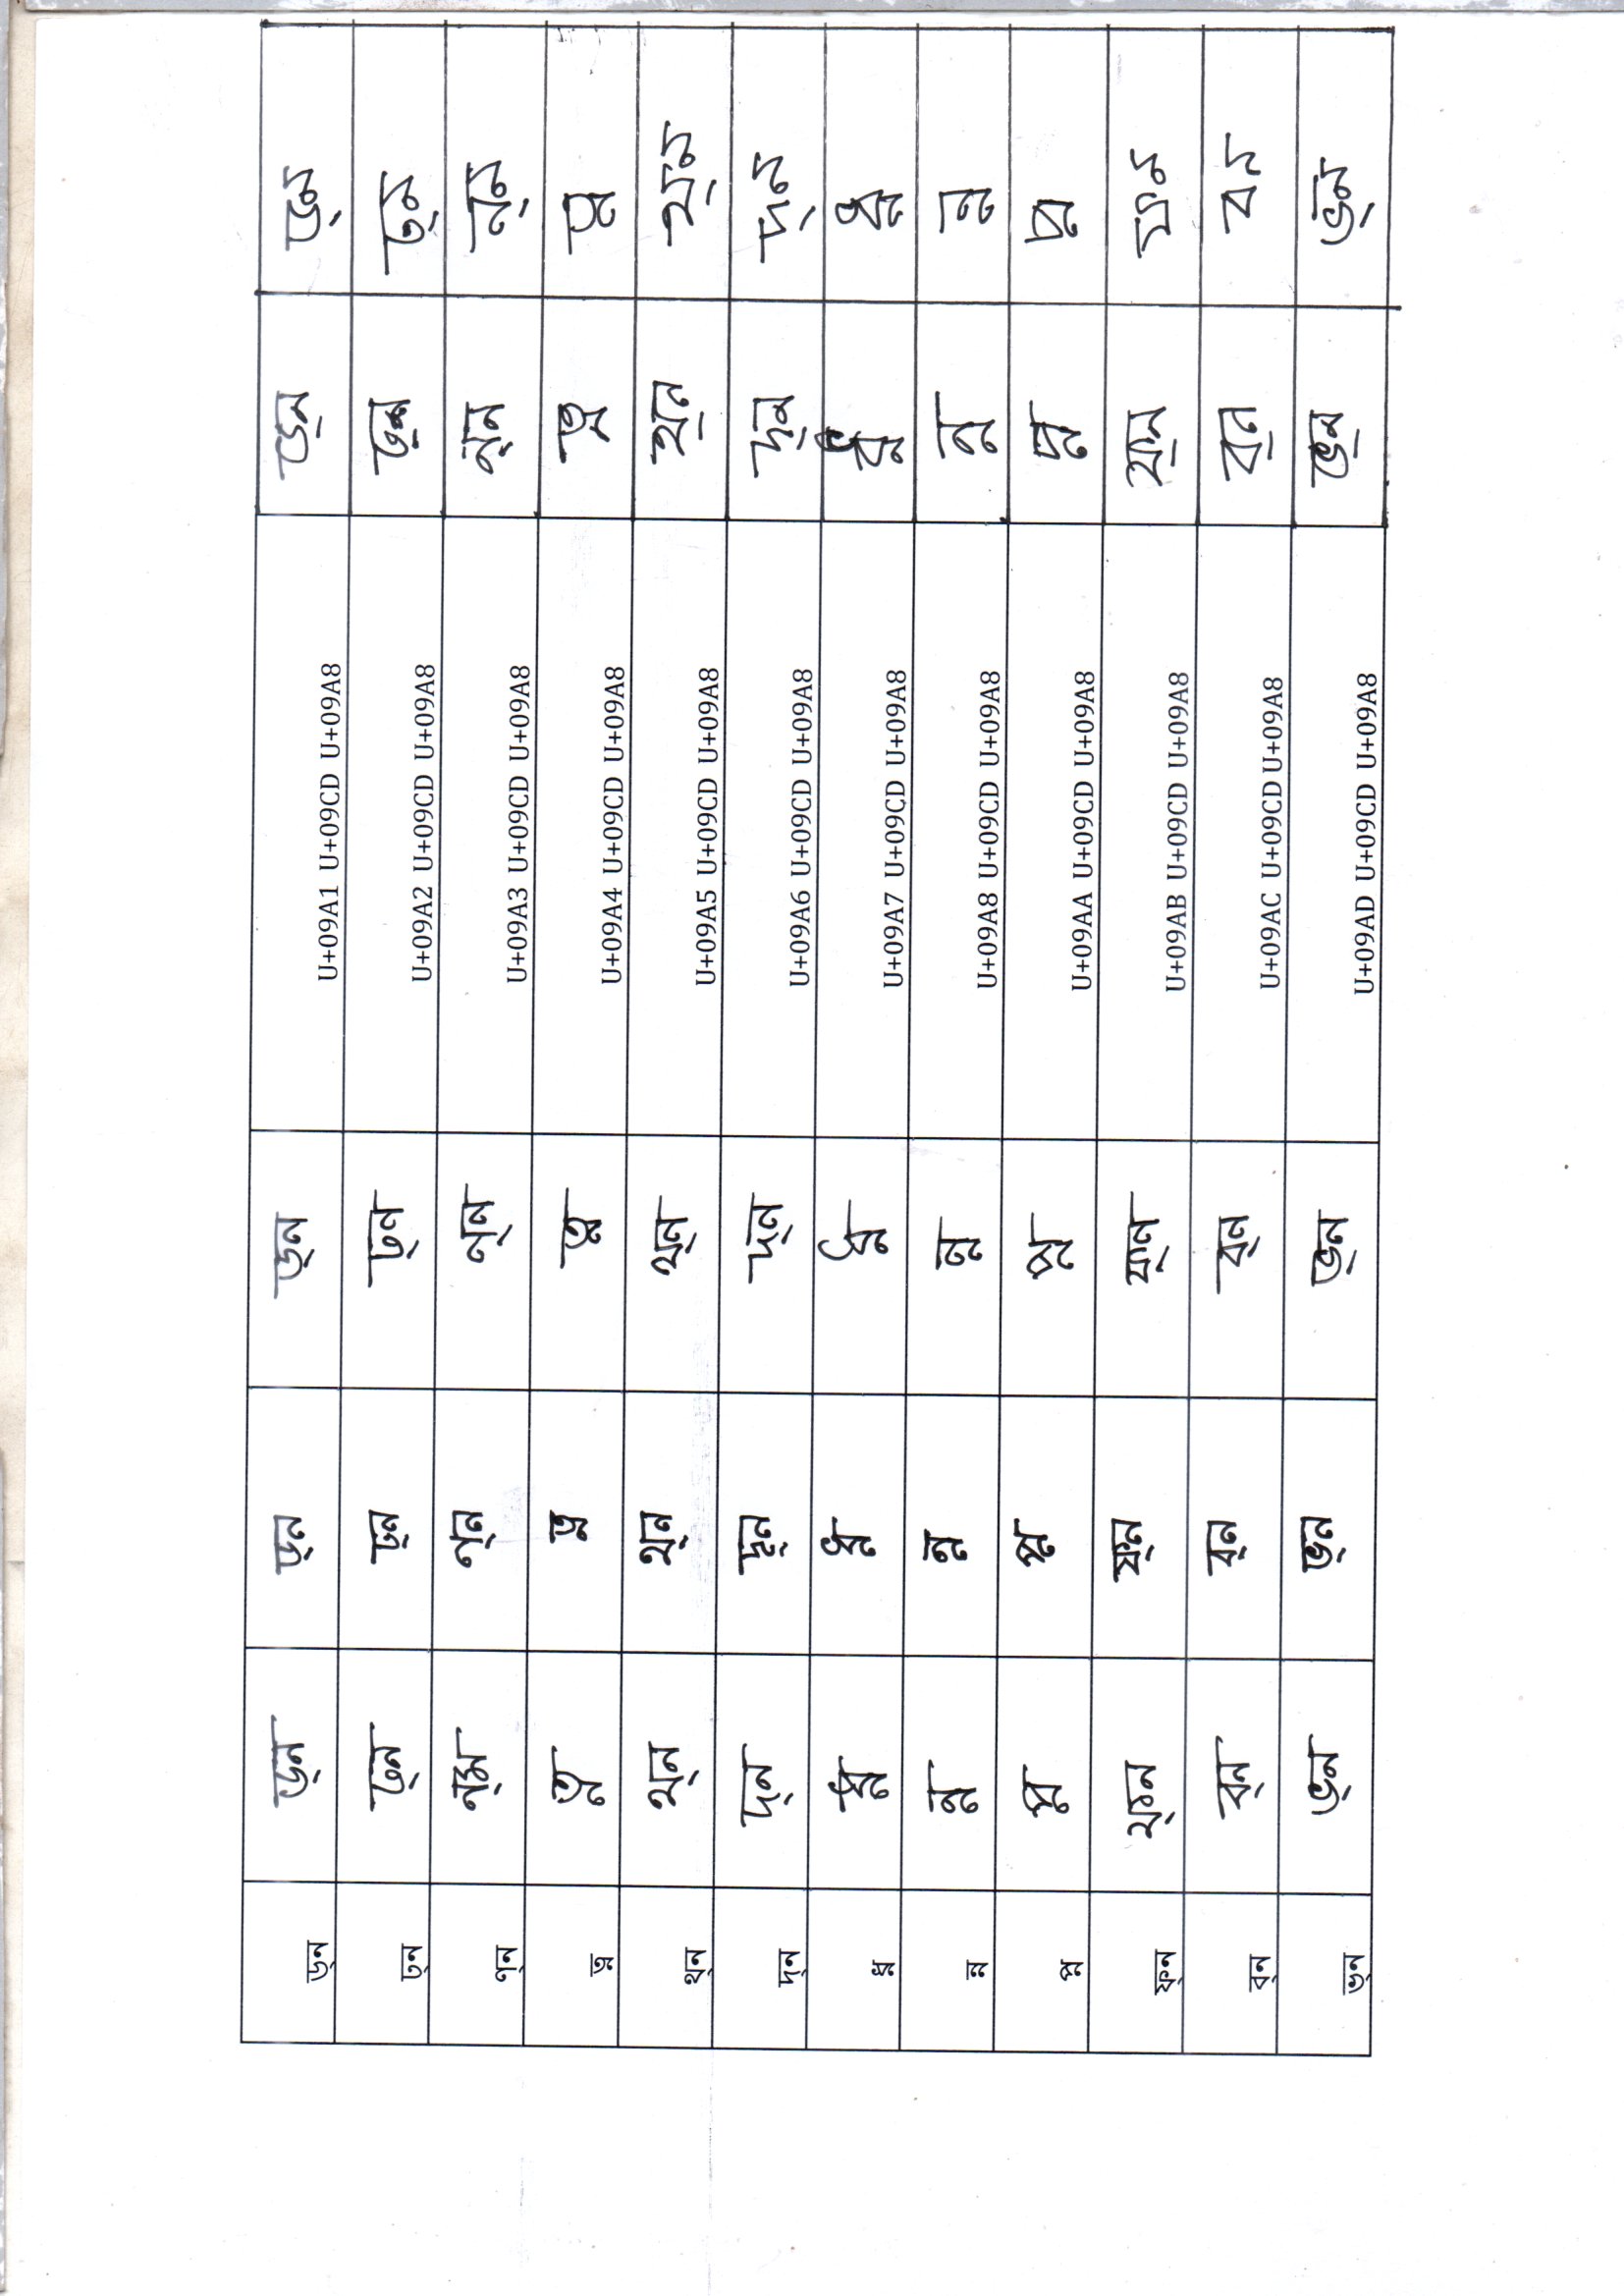 ড্ন ড্ন ড্ন ড্ন U+09A1 U+09CD U+09A8 ড্ন ড্ন
ঢ্ন ঢ্ন ঢ্ন ঢ্ন U+09A2 U+09CD U+09A8 ঢ্ন ঢ্ন
ণ্ন ন্ম ণ্ন ণ্ন U+09A3 U+09CD U+09A8 ণ্ন ণ্ন
ত্ন ত্ন ত্ন ত্ন U+09A4 U+09CD U+09A8 ত্ন ত্ন
থ্ন থ্ন থ্ন থ্ন U+09A5 U+09CD U+09A8 থ্ন থ্ন
দ্ন দ্ন দ্ন দ্ন U+09A6 U+09CD U+09A8 দ্ন দ্ন
ধ্ন ধ্ন ধ্ন ধ্ন U+09A7 U+09CD U+09A8 ধ্ন ধ্ন
ন্ন ন্ন ন্ন ন্ন U+09A8 U+09CD U+09A8 ন্ন ন্ন
প্ন প্ন প্ন প্ন U+09AA U+09CD U+09A8 প্ন প্ন
ফ্ন ফ্ন ফ্ন ফ্ন U+09AB U+09CD U+09A8 ফ্ন ফন
ব্ন ব্ন ব্ন ব্ন U+09AC U+09CD U+09A8 ব্ন বন
ভ্ন ভ্ন ভ্ন ভ্ন U+09AD U+09CD U+09A8 ভ্ন ভ্ন